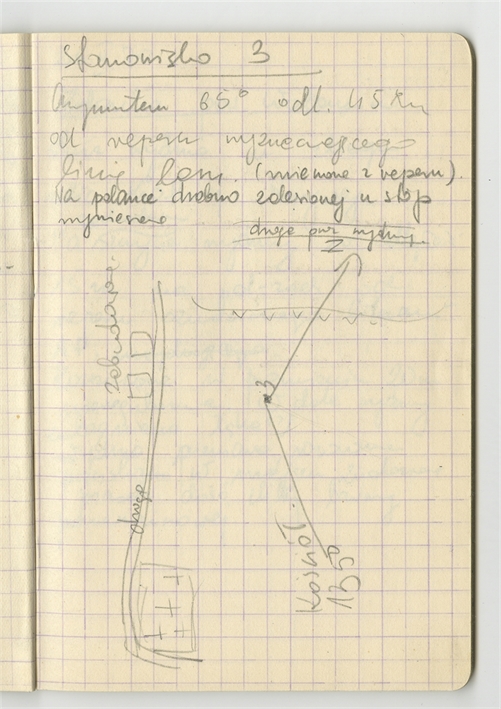 Stanowisko 3
65° odl. 45 km
od reperu wyznaczającego
linię (mierzone z reperu).
Na polance drobno zalesionej u stóp
wzniesienia
droga przez
Z
3
droga
Kościół
1350